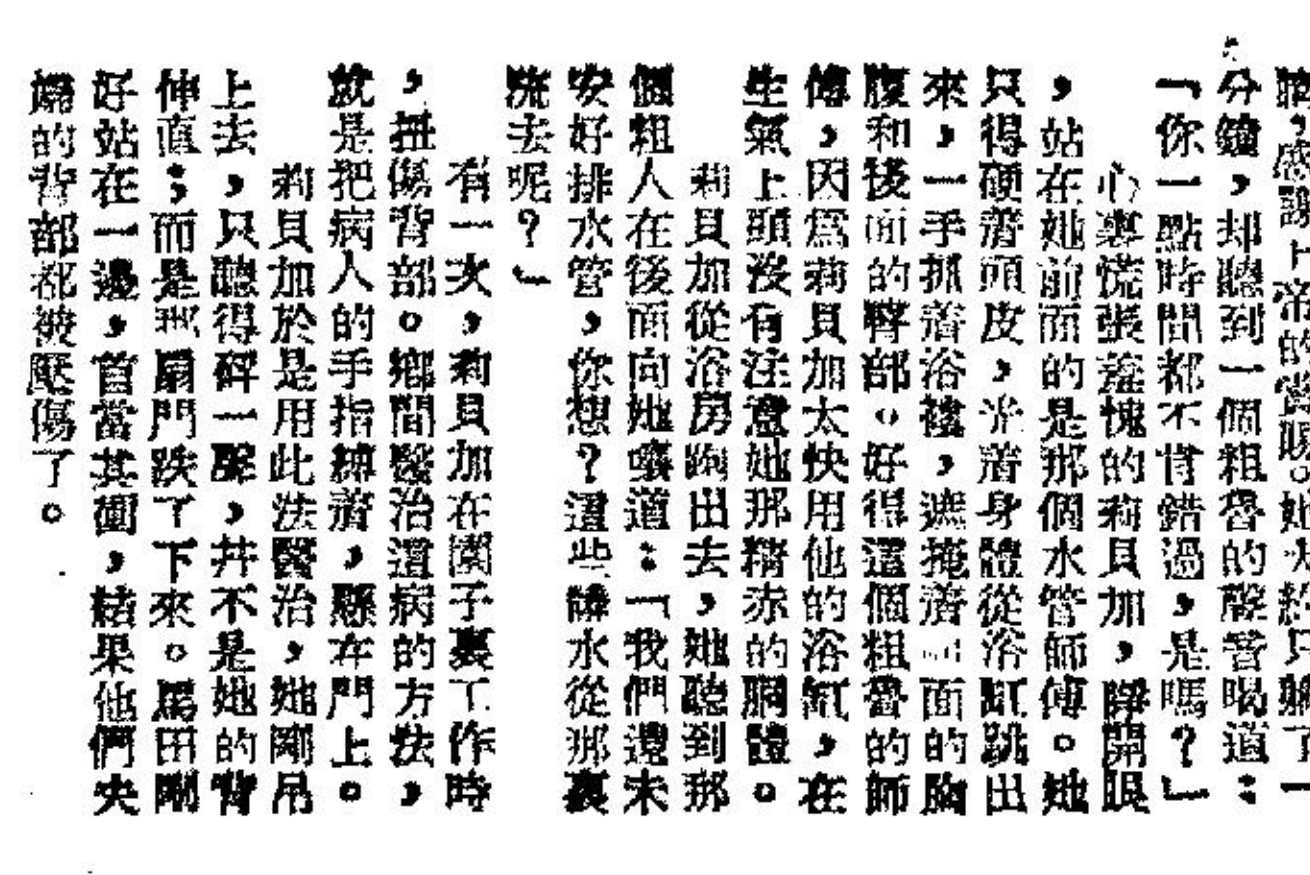 臨，感謝上帝的賞賜。她大約只躺了一
分鐘，却聽到一個粗魯的聲音喝道：
「你一點時間都不肯錯過，是嗎？」
心裏慌張羞愧的莉貝加，睜開眼
，站在她前面的是那個水管師傅。她
只得硬着頭皮，光着身體從浴缸跳出
來，一手抓着浴褸，遮掩着前面的胸
腹和後面的臀部。好得這個粗魯的師
傅，因爲莉貝加太快用他的浴缸，在
生氣上頭沒有注意她那精赤的胴體。
莉貝加從浴房跑出去，她聽到那
個粗人在後面向她嚷道：「我們還未
安好排水管，你想？這些髒水從那裏
流去呢？」
有一次，莉貝加在園子裏工作時
，扭傷背部。鄉間醫治這病的方法，
就是把病人的手指縛着，懸在門上。
莉貝加於是用此法醫治，她剛吊
上去，只聽得砰一聲，并不是她的背
伸直；而是那扇門跌了下來。馬田剛
好站在一邊，首當其衝，結果他們夫
婦的背部都被壓傷了。